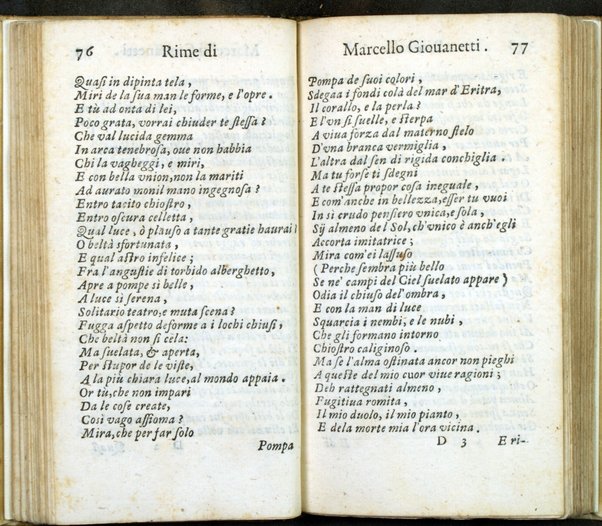 76 Rime di
Quaſi in dipinta tela,
Miri de la ſua man le forme, e l'opre.
E tù ad onta di lei,
Poco grata, vorrai chiuder te ſteſſa?
Che val lucida gemma
In arca tenebroſa, oue non habbia
Chi la vagheggi, e miri,
E con bella vnion, non la mariti
Ad aurato monil mano ingegnoſa?
Entro tacito chioſtro,
Entro oſcura celletta,
Qual luce, ò plauſo a tante gratie haurai?
O beltà sfortunata,
E qual aſtro infelice;
Fra l'anguſtie di torbido alberghetto,
Apre a pompe sì belle,
A luce sì ſerena,
Solitario teatro, e muta ſcena?
Fugga aſpetto deforme a i lochi chiuſi,
Che beltà non ſi cela:
Ma ſuelata, & aperta,
Per ſtupor de le viſte,
A la più chiara luce, al mondo appaia.
Or tù, che non impari
Da le coſe create,
Così vago aſſioma?
Mira, che per far ſolo
Pompa
Marcello Giouanetti. 77
Pompa de ſuoi colori,
Sdegna i fondi colà del mar d'Eritra,
Il corallo, e la perla?
E l'vn ſi ſuelle, e ſterpa
A viua forza dal materno ſtelo
D'vna branca vermiglia,
L'altra dal ſen di rigida conchiglia.
Ma tu forſe ti ſdegni
A te ſteſſa propor coſa ineguale,
E com'anche in bellezza, eſſer tu vuoi
In sì crudo penſiero vnica, e ſola,
Sij almeno del Sol, ch'vnico è anch'egli
Accorta imitatrice;
Mira com'ei laſſuſo
(Perche ſembra più bello
Se ne' campi del Ciel ſuelato appare)
Odia il chiuſo del'ombra,
E con la man di luce
Squarcia i nembi, e le nubi,
Che gli formano intorno
Chioſtro caliginoſo.
Ma ſe l'alma oſtinata ancor non pieghi
A queſte del mio cuor viue ragioni;
Deh rattegnati almeno,
Fugitiua romita,
Il mio duolo, il mio pianto,
E dela morte mia l'ora vicina.
D 3 Eri-